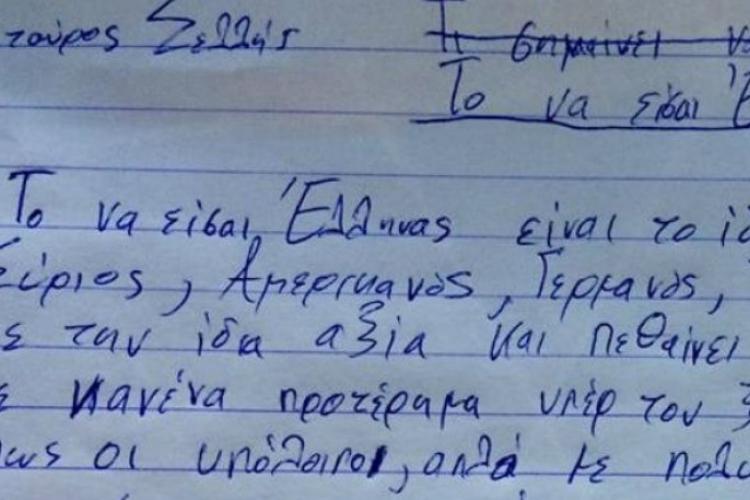 ταύρος Σελλής Τι σημαίνει
Το να είσαι Έ
Το να είσαι Έλληνας είναι το ίδ
Σύριος, Αμερικανός, Γερμανός,
ς την ίδια αξία και πεθαίνει
ε κανένα προτέραμα υπέρ του
πως οι υπόλοιποι, αλλά με πολ